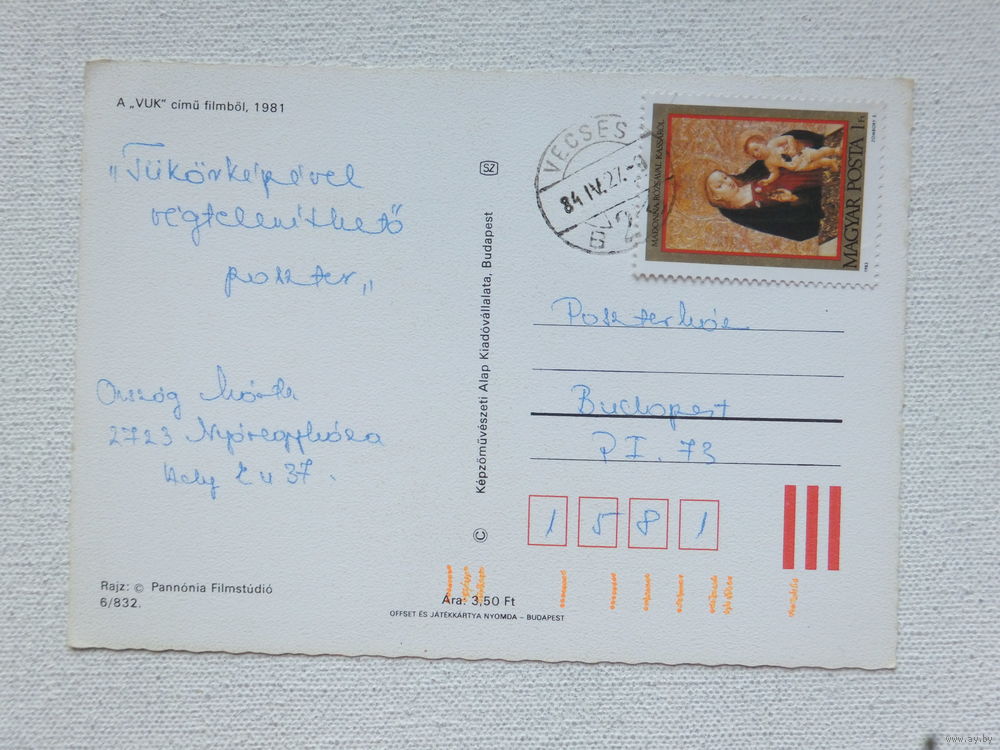 A „VUK” című filmből, 1981
„Tükörképével
végteleníthető
poszter„
Ország Márta
2723 Nyáregyháza
Ady E u 37.
Rajz: © Pannónia Filmstúdió
6/832.
SZ
© Képzőművészeti Alap Kiadóvállalata, Budapest
Ára: 3,50 Ft
OFFSET ÉS JÁTÉKKÁRTYA NYOMDA – BUDAPEST
VECSÉS
84 IV. 27.
MADONNA RÓZSÁVAL KASSÁRÓL
MAGYAR POSTA 1 Ft
1983
Poszterház
Budapest
Pf. 73
1 5 8 1
www.ay.by